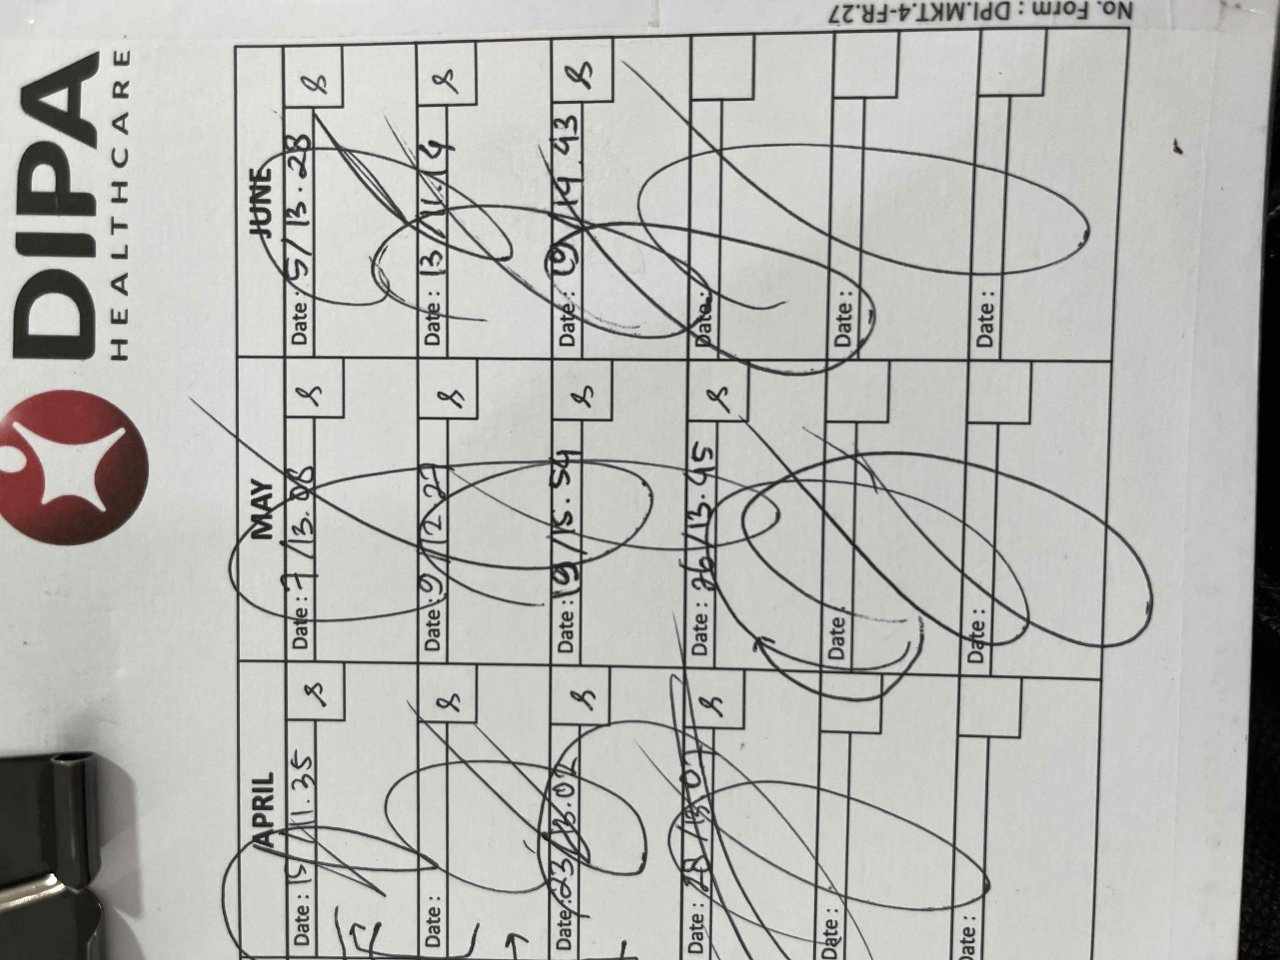 DIPA
HEALTHCARE
No. Form : DPI.MKT.4-FR.27
APRIL
MAY
JUNE
Date : 15 11.35
Date : 7/13.08
Date : 5/13.23
Date :
Date : 9 12.22
Date : 13
Date : 23/13.02
Date : 19/15.54
Date : 19 14.43
Date : 28
Date : 26/13.45
Date :
Date :
Date
Date :
Date :
Date :
Date :